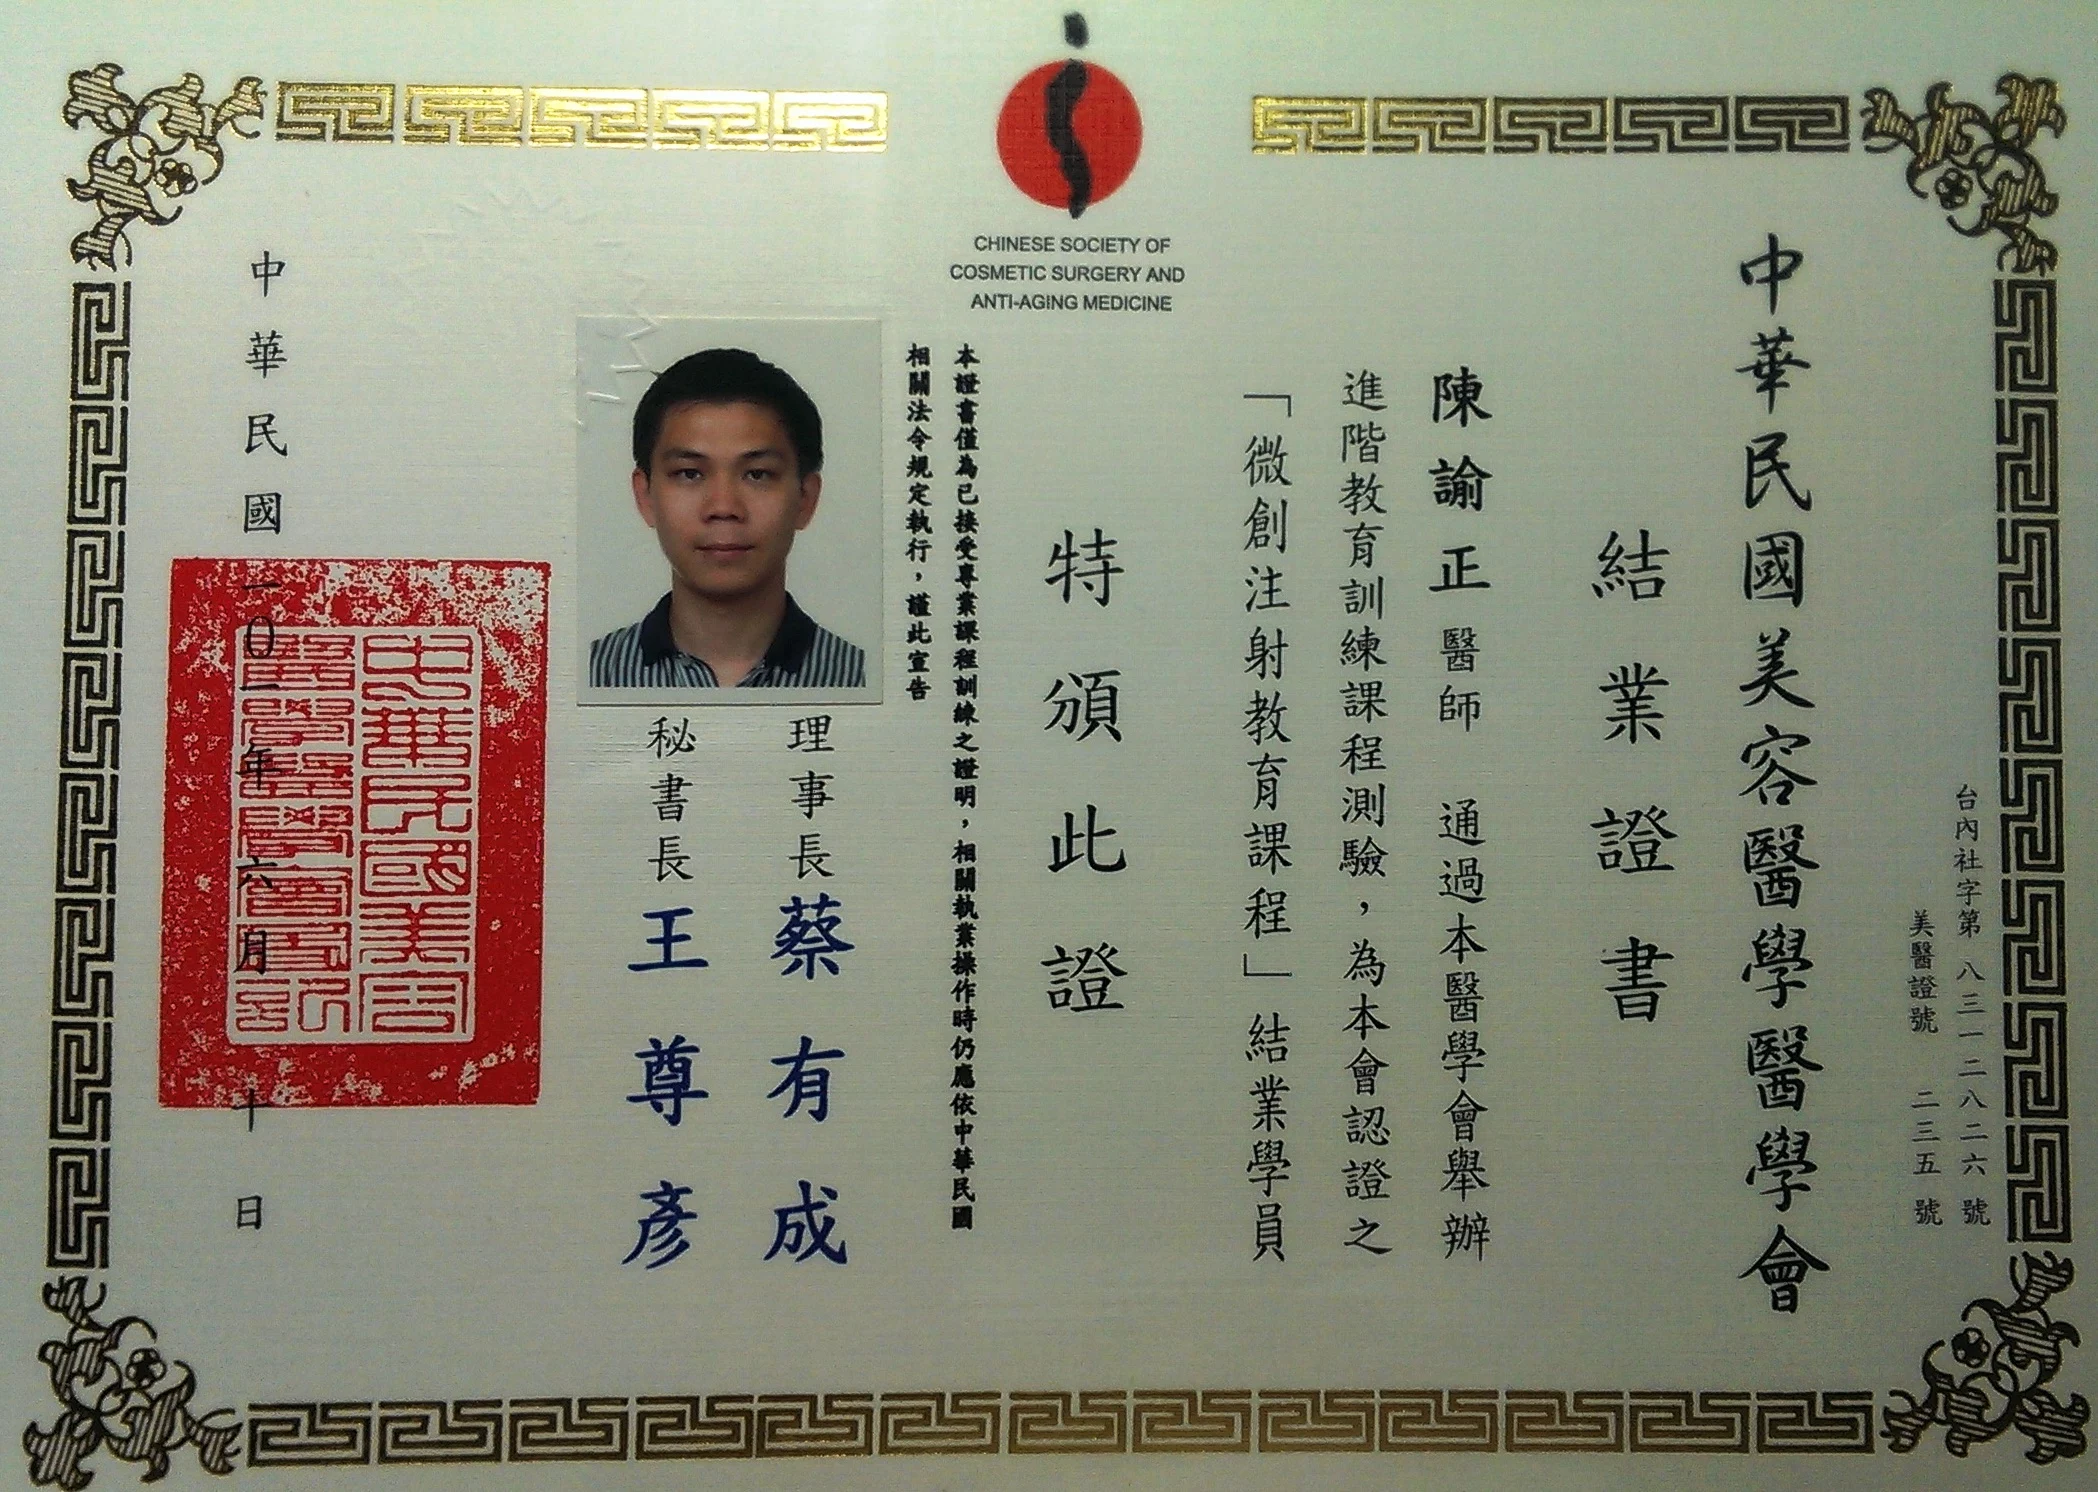 CHINESE SOCIETY OF
COSMETIC SURGERY AND
ANTI-AGING MEDICINE
台內社字第 八三一二八二六 號
美醫證號 二三五 號
中華民國美容醫學醫學會
結業證書
陳諭正醫師 通過本醫學會舉辦
進階教育訓練課程測驗，為本會認證之
「微創注射教育課程」結業學員
特頒此證
本證書僅為已接受專業課程訓練之證明，相關執業操作時仍應依中華民國
相關法令規定執行，謹此宣告
理事長 蔡有成
秘書長 王尊彥
中華民國一〇一年六月十日
中華民國美容